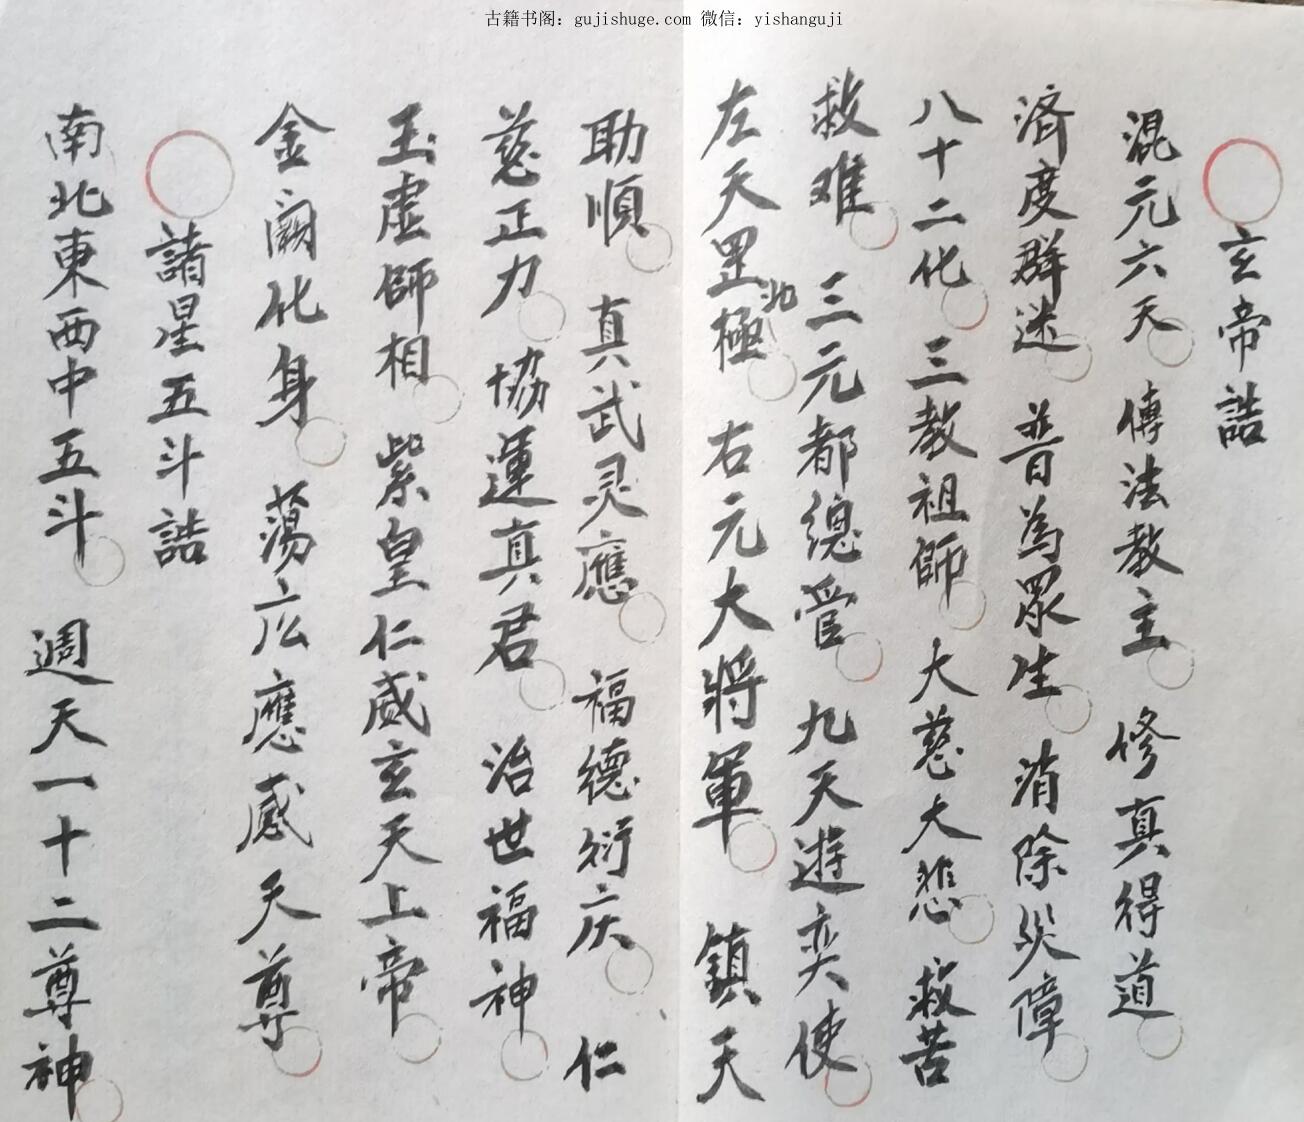 古籍书阁：gujishuge.com 微信：yishanguji
玄帝誥
混元六天 傳法教主 修真得道
済度群迷 普為眾生 消除災障
八十二化 三教祖師 大慈大悲 救苦
救难 三元都總管 九天遊奕使
左天罡北極 右元大將軍 鎮天
助順 真武灵應 福德衍庆 仁
慈正力 協運真君 治世福神
玉虚師相 紫皇仁威玄天上帝
金闕化身 蕩広應感天尊
諸星五斗誥
南北東西中五斗 週天一十二尊神